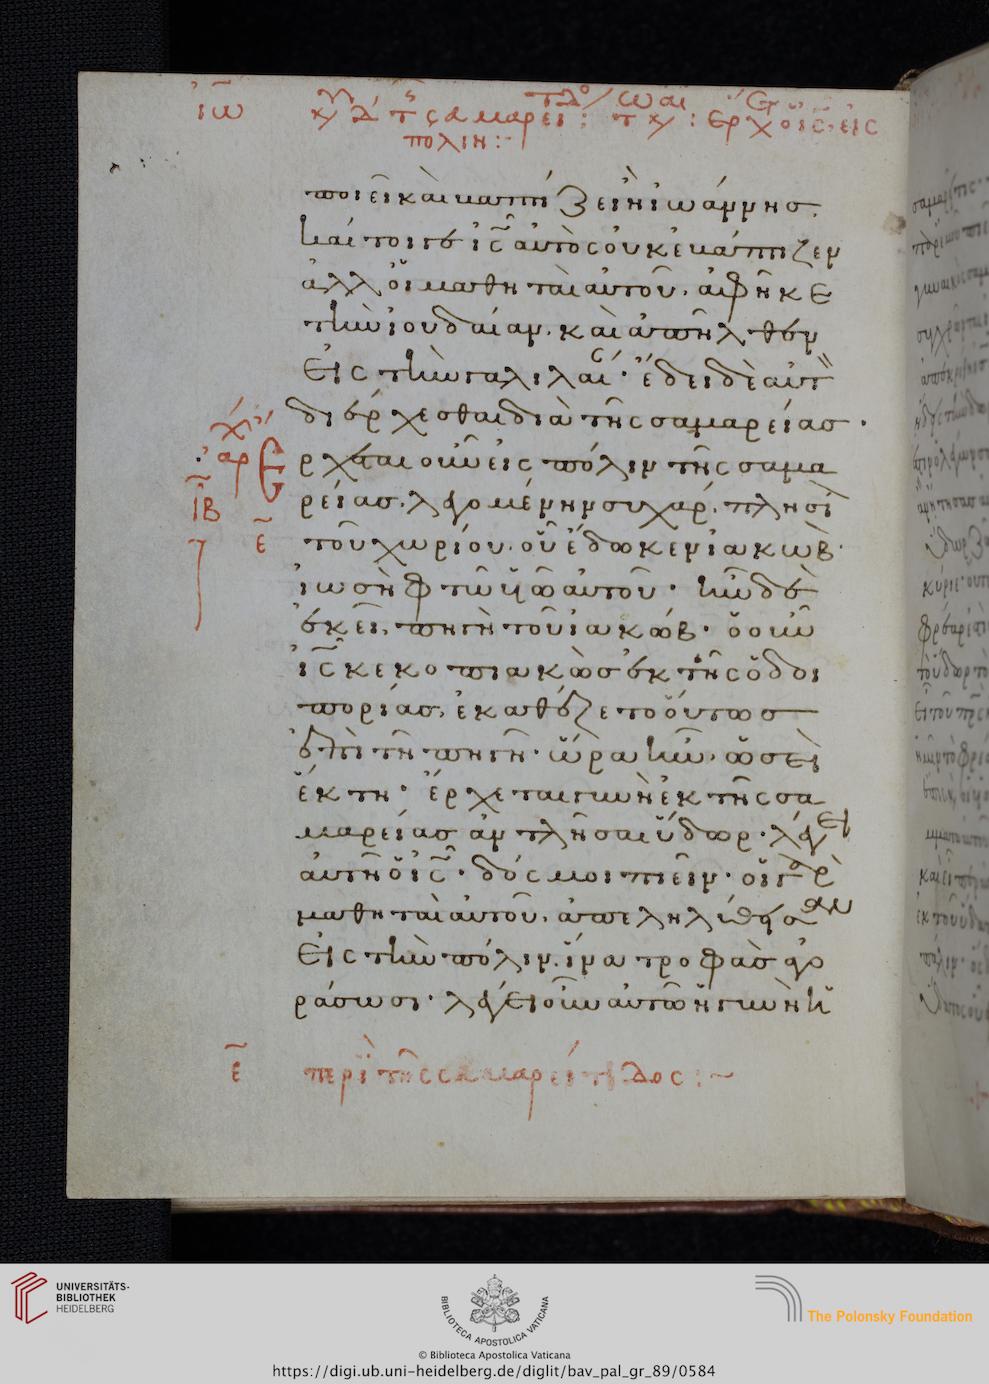 ἰω κυ δ τς σαμαρει: τ κυ: ερχ ὁ ις εἰς
πολιν:
ποιεῖ καὶ βαπτίζει ἢ ἰωάννησ.
καί τοι γε ις αὐτὸς οὐκ ἐβάπτιζεν
ἀλλ οἱ μαθηταὶ αὐτοῦ. ἀφῆκε
τὴν ἰουδαίαν. καὶ ἀπῆλθεν
εἰς τὴν γαλιλαί. ἔδει δὲ αὐτ
διέρχεσθαι διὰ τῆς σαμαρείασ.
ἔρχεται οὖν εἰς πόλιν τῆς σαμα
ρείασ. λεγομένην συχάρ. πλησί
τοῦ χωρίου. οὗ ἔδωκεν ἰακὼβ.
ἰωσὴφ τῶ υἱῶ αὐτοῦ. ἦν δὲ
ἐκεῖ, πηγὴ τοῦ ἰακώβ. ὁ οὖν
ις κεκοπιακὼσ ἐκ τῆς ὁδοι
πορίασ, ἐκαθέζετο οὕτωσ
ἐπὶ τῆ πηγῆ. ὥρα ἦν. ὡσεὶ
ἕκτη. ἔρχεται γυνὴ ἐκ τῆς σα
μαρείασ ἀντλῆσαι ὕδωρ. λέγει
αὐτῆ ὁ ις. δός μοι πιεῖν. οἱ γὰρ
μαθηταὶ αὐτοῦ. ἀπεληλύθεισαν
εἰς τὴν πόλιν. ἵνα τροφὰσ ἀγο
ράσωσι. λέγει οὖν αὐτῶ ἡ γυνὴ ἡ
αρ
ιβ
ε
ε περὶ τῆς σαμαρείτιδος:~
UNIVERSITÄTS-
BIBLIOTHEK
HEIDELBERG
BIBLIOTECA APOSTOLICA VATICANA
The Polonsky Foundation
© Biblioteca Apostolica Vaticana
https://digi.ub.uni-heidelberg.de/diglit/bav_pal_gr_89/0584